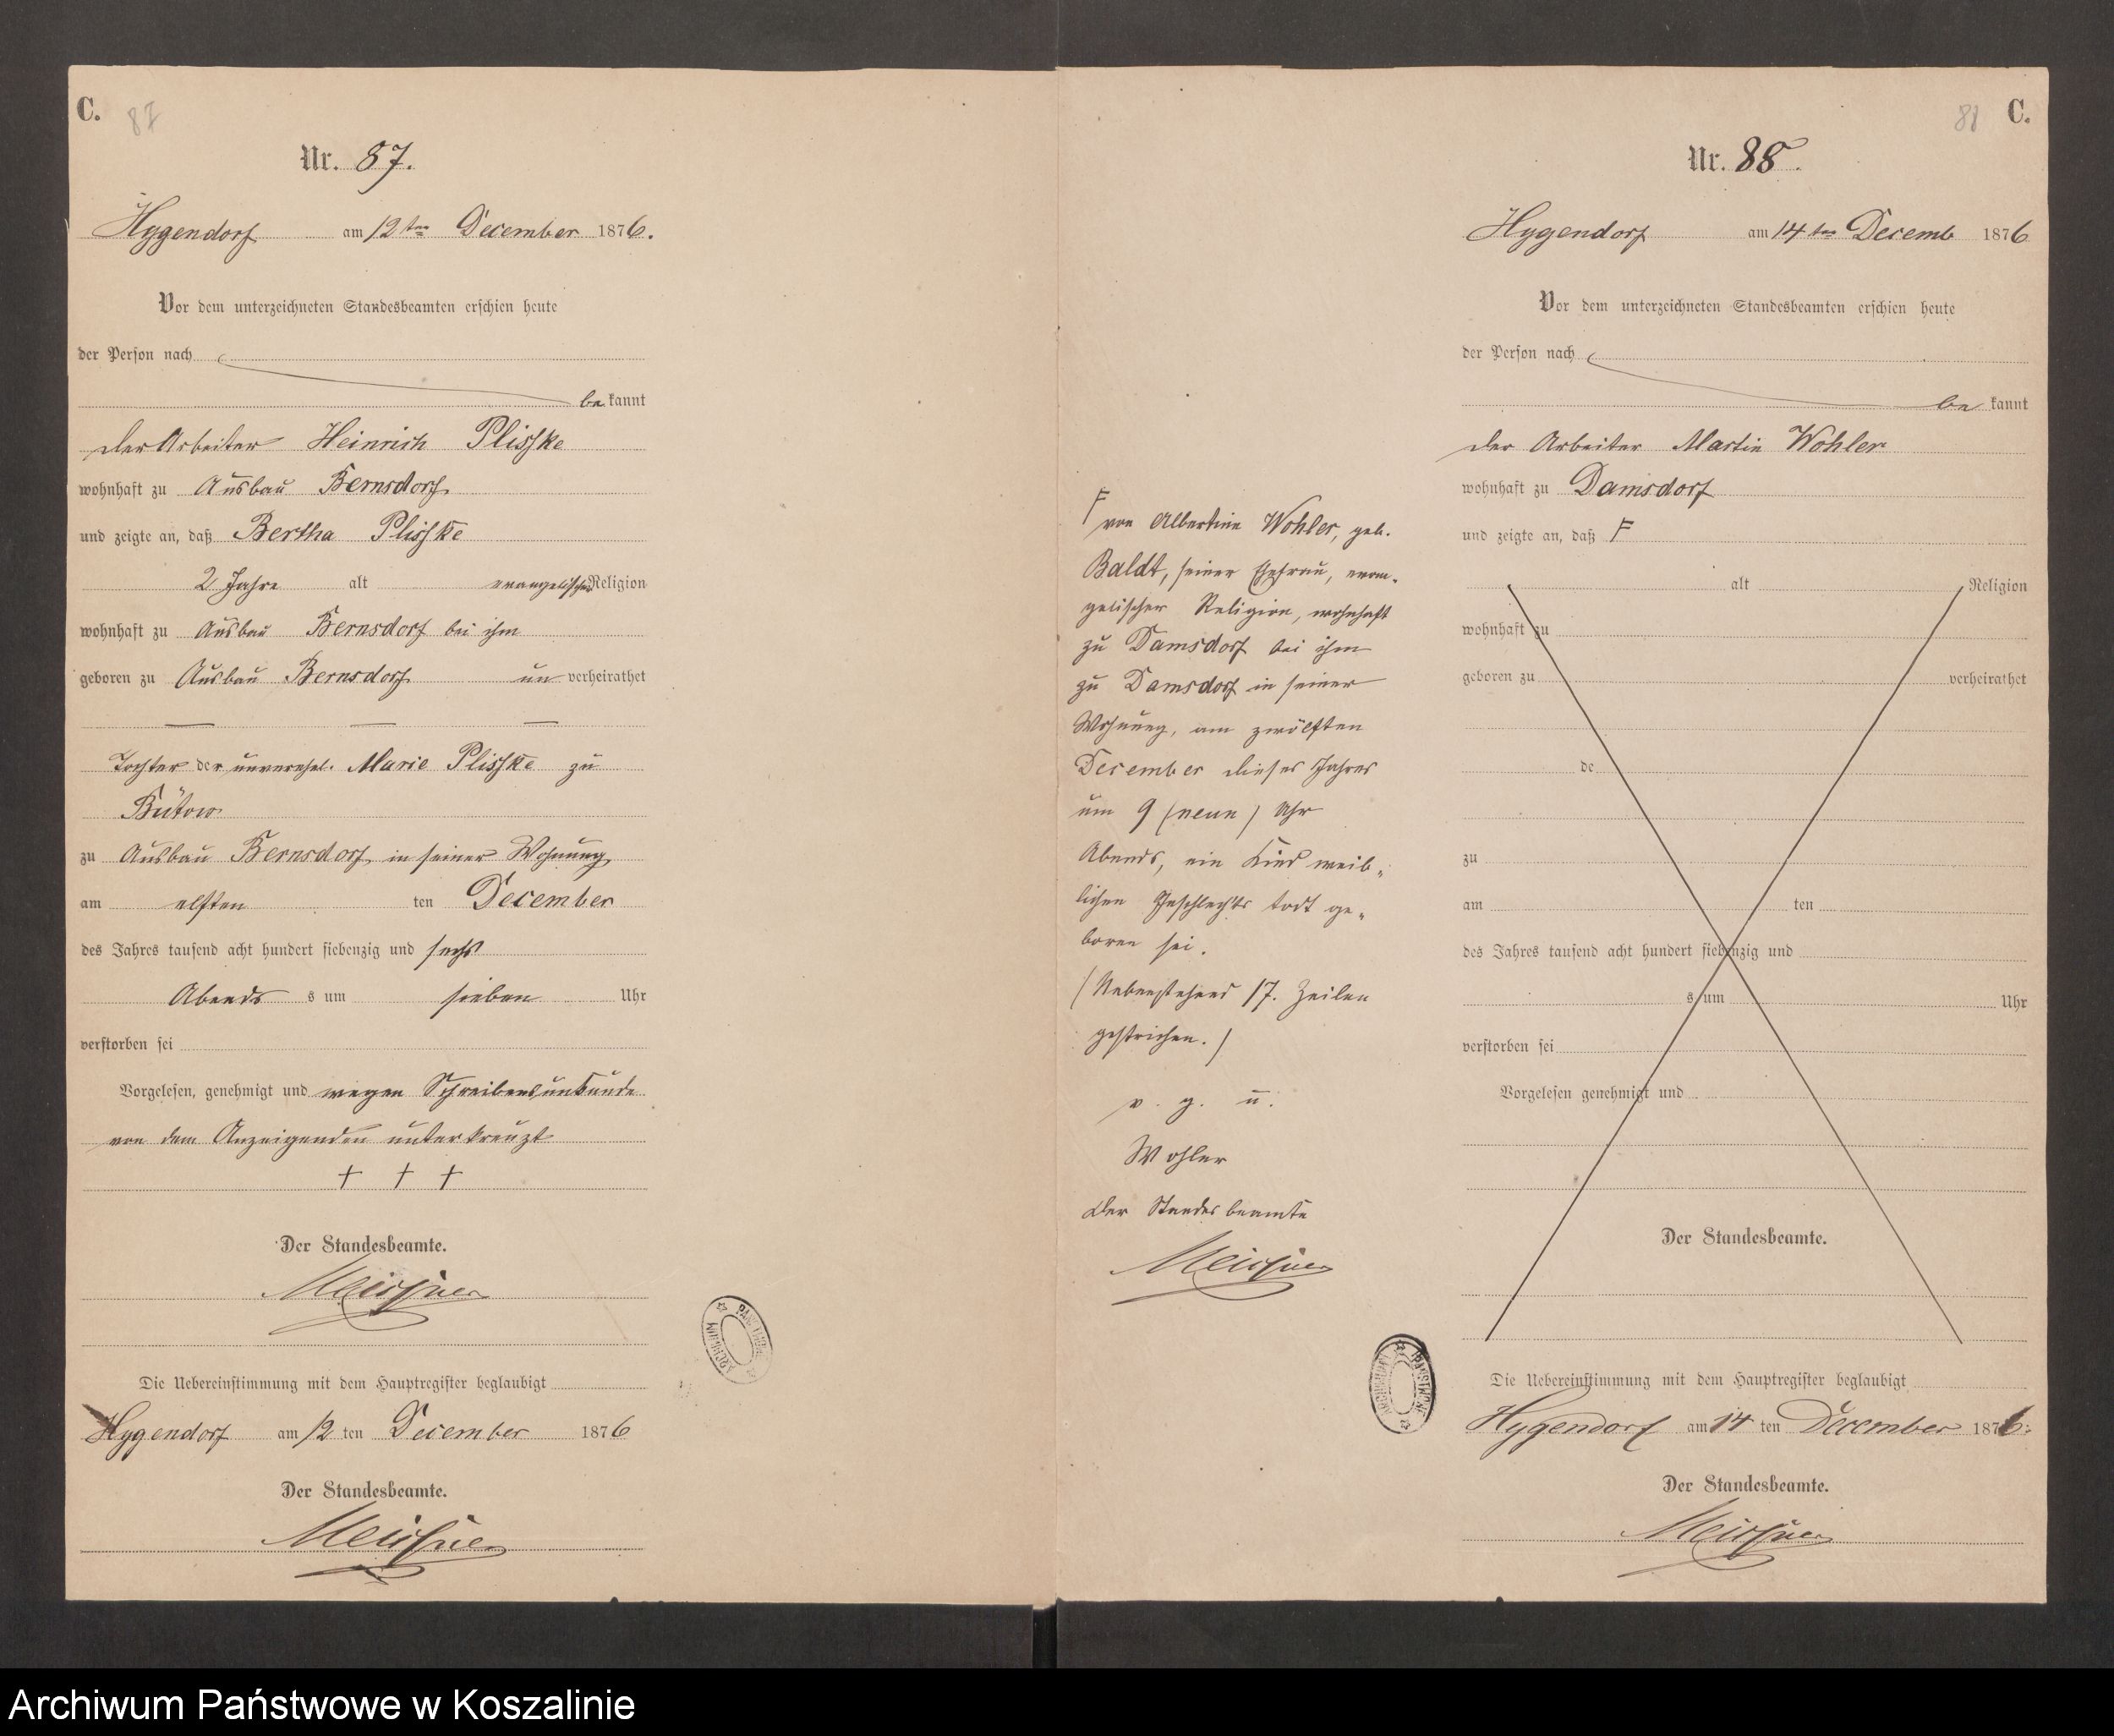 C.
87
Nr. 87.
Hygendorf am 12ten December 1876.
Vor dem unterzeichneten Standesbeamten erschien heute
der Person nach
bekannt
der Arbeiter Heinrich Plischke
wohnhaft zu Ausbau Bernsdorf
und zeigte an, daß Bertha Plischke
2 Jahre alt evangelischer Religion
wohnhaft zu Ausbau Bernsdorf bei ihm
geboren zu Ausbau Bernsdorf unverheirathet
Tochter der unverehel. Marie Plischke zu
Bütow
zu Ausbau Bernsdorf in seiner Wohnung
am elften ten December
des Jahres tausend acht hundert siebenzig und sechs
Abends s um sieben Uhr
verstorben sei
Vorgelesen, genehmigt und wegen Schreibensunkunde
von dem Anzeigenden unterkreuzt
† † †
Der Standesbeamte.
Meissner
Die Uebereinstimmung mit dem Hauptregister beglaubigt
Hygendorf am 12 ten December 1876
Der Standesbeamte.
Meissner
F von Albertine Wohler, geb.
Baldt, seiner Ehefrau, evan-
gelischer Religion, wohnhaft
zu Damsdorf bei ihm
zu Damsdorf in seiner
Wohnung, am zwölften
December dieses Jahres
um 9 (neun) Uhr
Abends, ein Kind weib-
lichen Geschlechts todt ge-
boren sei.
(Nebenstehend 17. Zeilen
gestrichen.)
v. g. u.
Wohler
Der Standesbeamte
Meissner
88 C.
Nr. 88.
Hygendorf am 14ten Decemb 1876
Vor dem unterzeichneten Standesbeamten erschien heute
der Person nach
bekannt
der Arbeiter Martin Wohler
wohnhaft zu Damsdorf
und zeigte an, daß F
alt Religion
wohnhaft zu
geboren zu verheirathet
de
zu
am ten
des Jahres tausend acht hundert siebenzig und
s um Uhr
verstorben sei
Vorgelesen genehmigt und
Der Standesbeamte.
Die Uebereinstimmung mit dem Hauptregister beglaubigt
Hygendorf am 14 ten December 1876.
Der Standesbeamte.
Meissner
ARCHIWUM PAŃSTWOWE
Archiwum Państwowe w Koszalinie